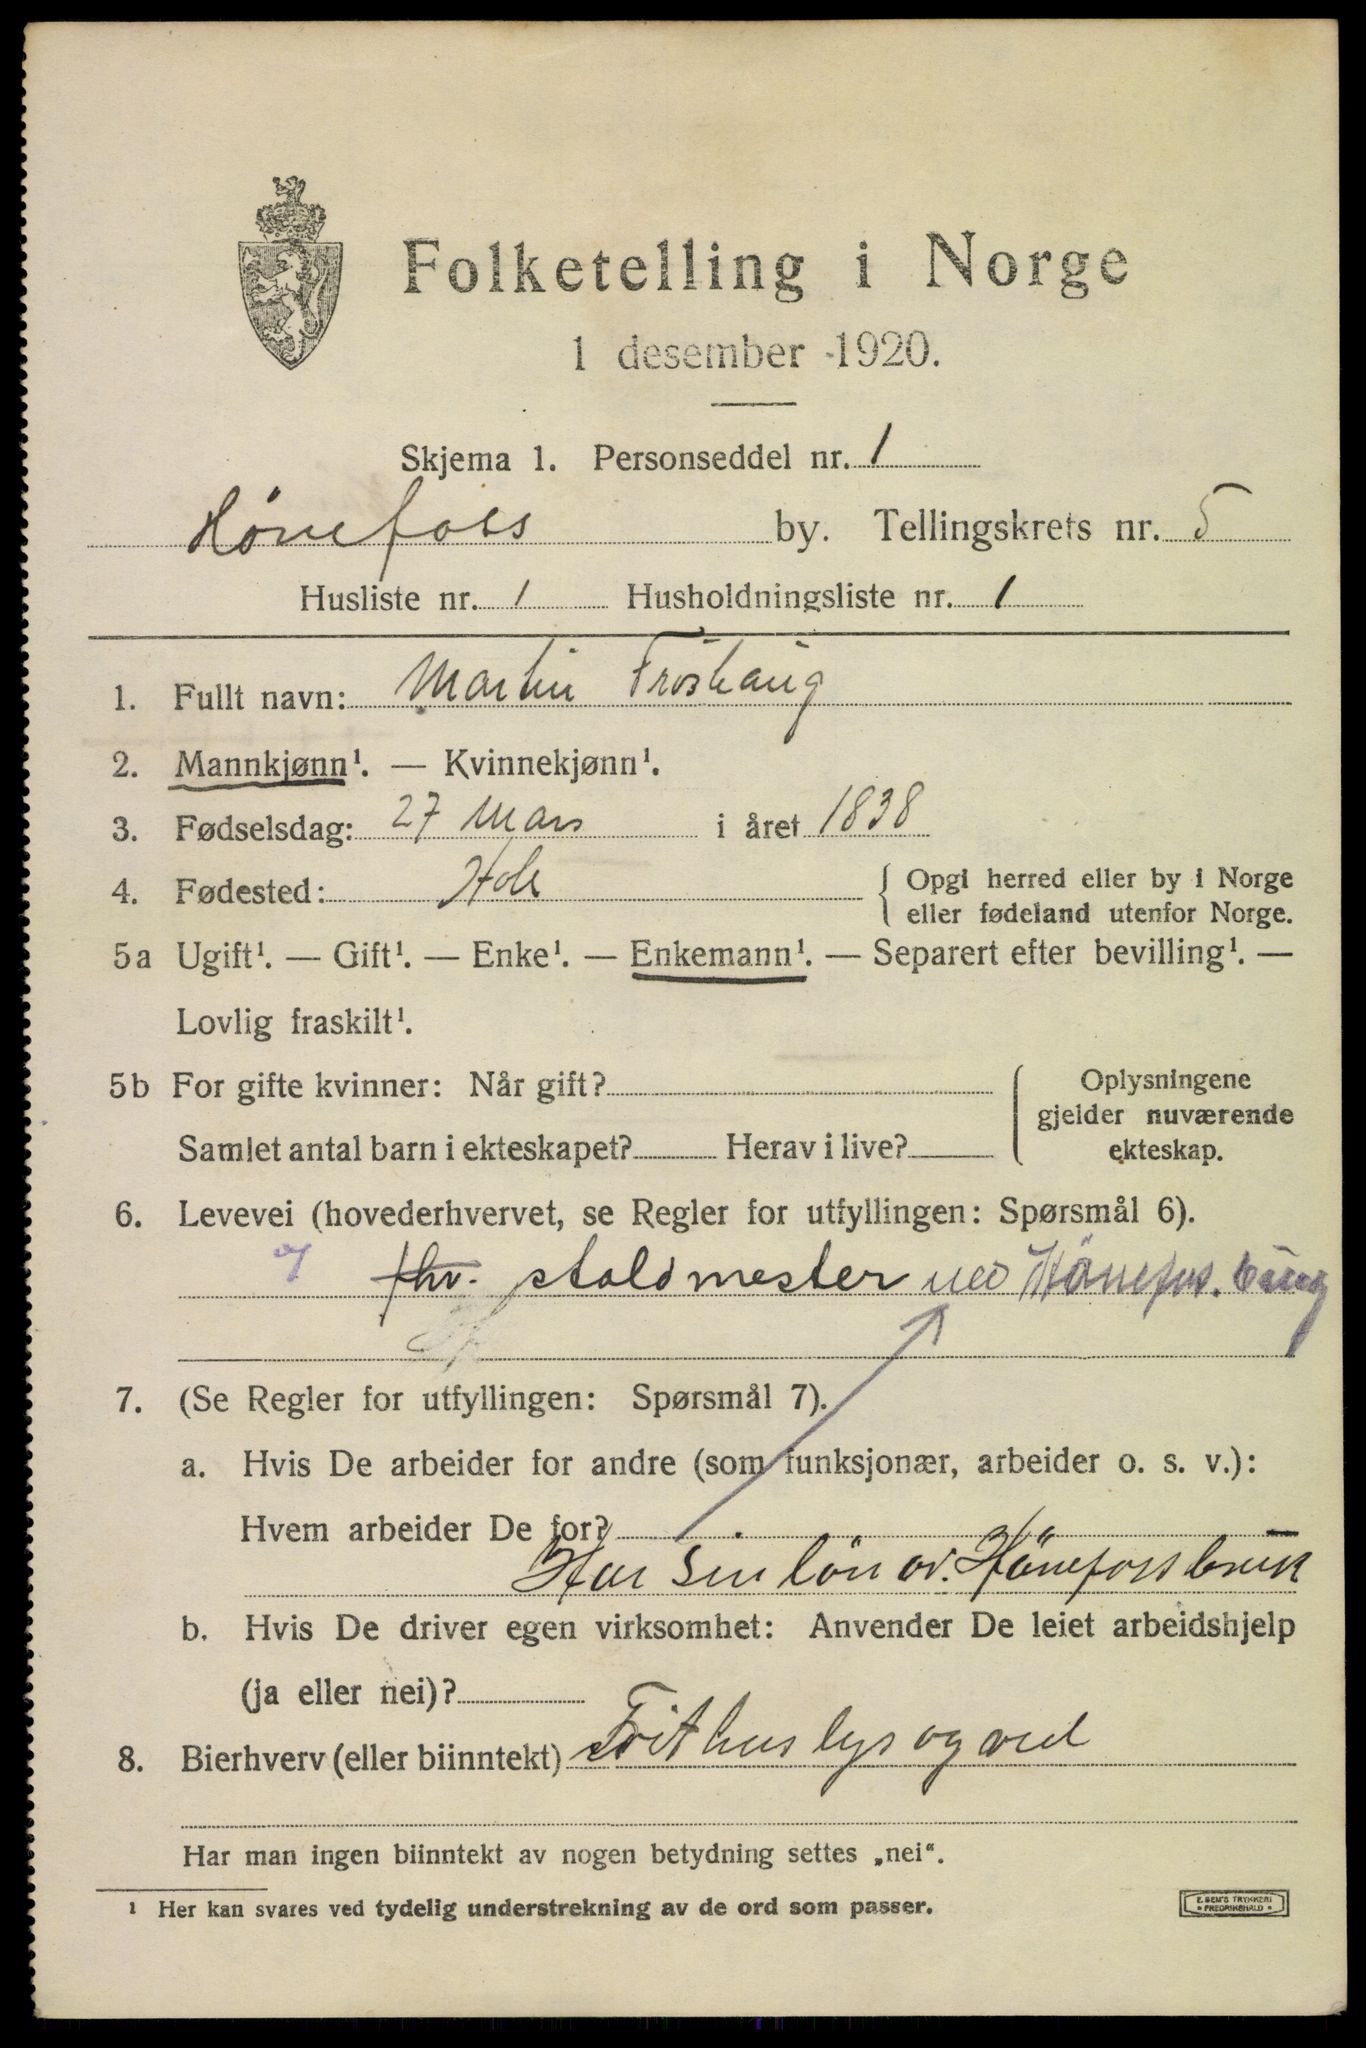 Folketelling i Norge
1 desember 1920.
Skjema 1. Personseddel nr. 1
Hønefoss by. Tellingskrets nr. 5
Husliste nr. 1 Husholdningsliste nr. 1
1. Fullt navn: Martin Frøshaug
2. Mannkjønn¹. — Kvinnekjønn¹.
3. Fødselsdag: 27 Mars i året 1838
4. Fødested: Hole { Opgi herred eller by i Norge
eller fødeland utenfor Norge.
5a Ugift¹. — Gift¹. — Enke¹. — Enkemann¹. — Separert efter bevilling¹. —
Lovlig fraskilt¹.
5b For gifte kvinner: Når gift? Oplysningene
gjelder nuværende
Samlet antal barn i ekteskapet? Herav i live? ekteskap.
6. Levevei (hovederhvervet, se Regler for utfyllingen: Spørsmål 6).
fhv. staldmester ved Hönefos. brug
7. (Se Regler for utfyllingen: Spørsmål 7).
a. Hvis De arbeider for andre (som funksjonær, arbeider o. s. v.):
Hvem arbeider De for?
Har sin lön av. Hönefoss bruk
b. Hvis De driver egen virksomhet: Anvender De leiet arbeidshjelp
(ja eller nei)?
8. Bierhverv (eller biinntekt) Frit hus lys og ved
Har man ingen biinntekt av nogen betydning settes „nei“.
¹ Her kan svares ved tydelig understrekning av de ord som passer.
E. SEM'S TRYKKERI
FREDRIKSHALD